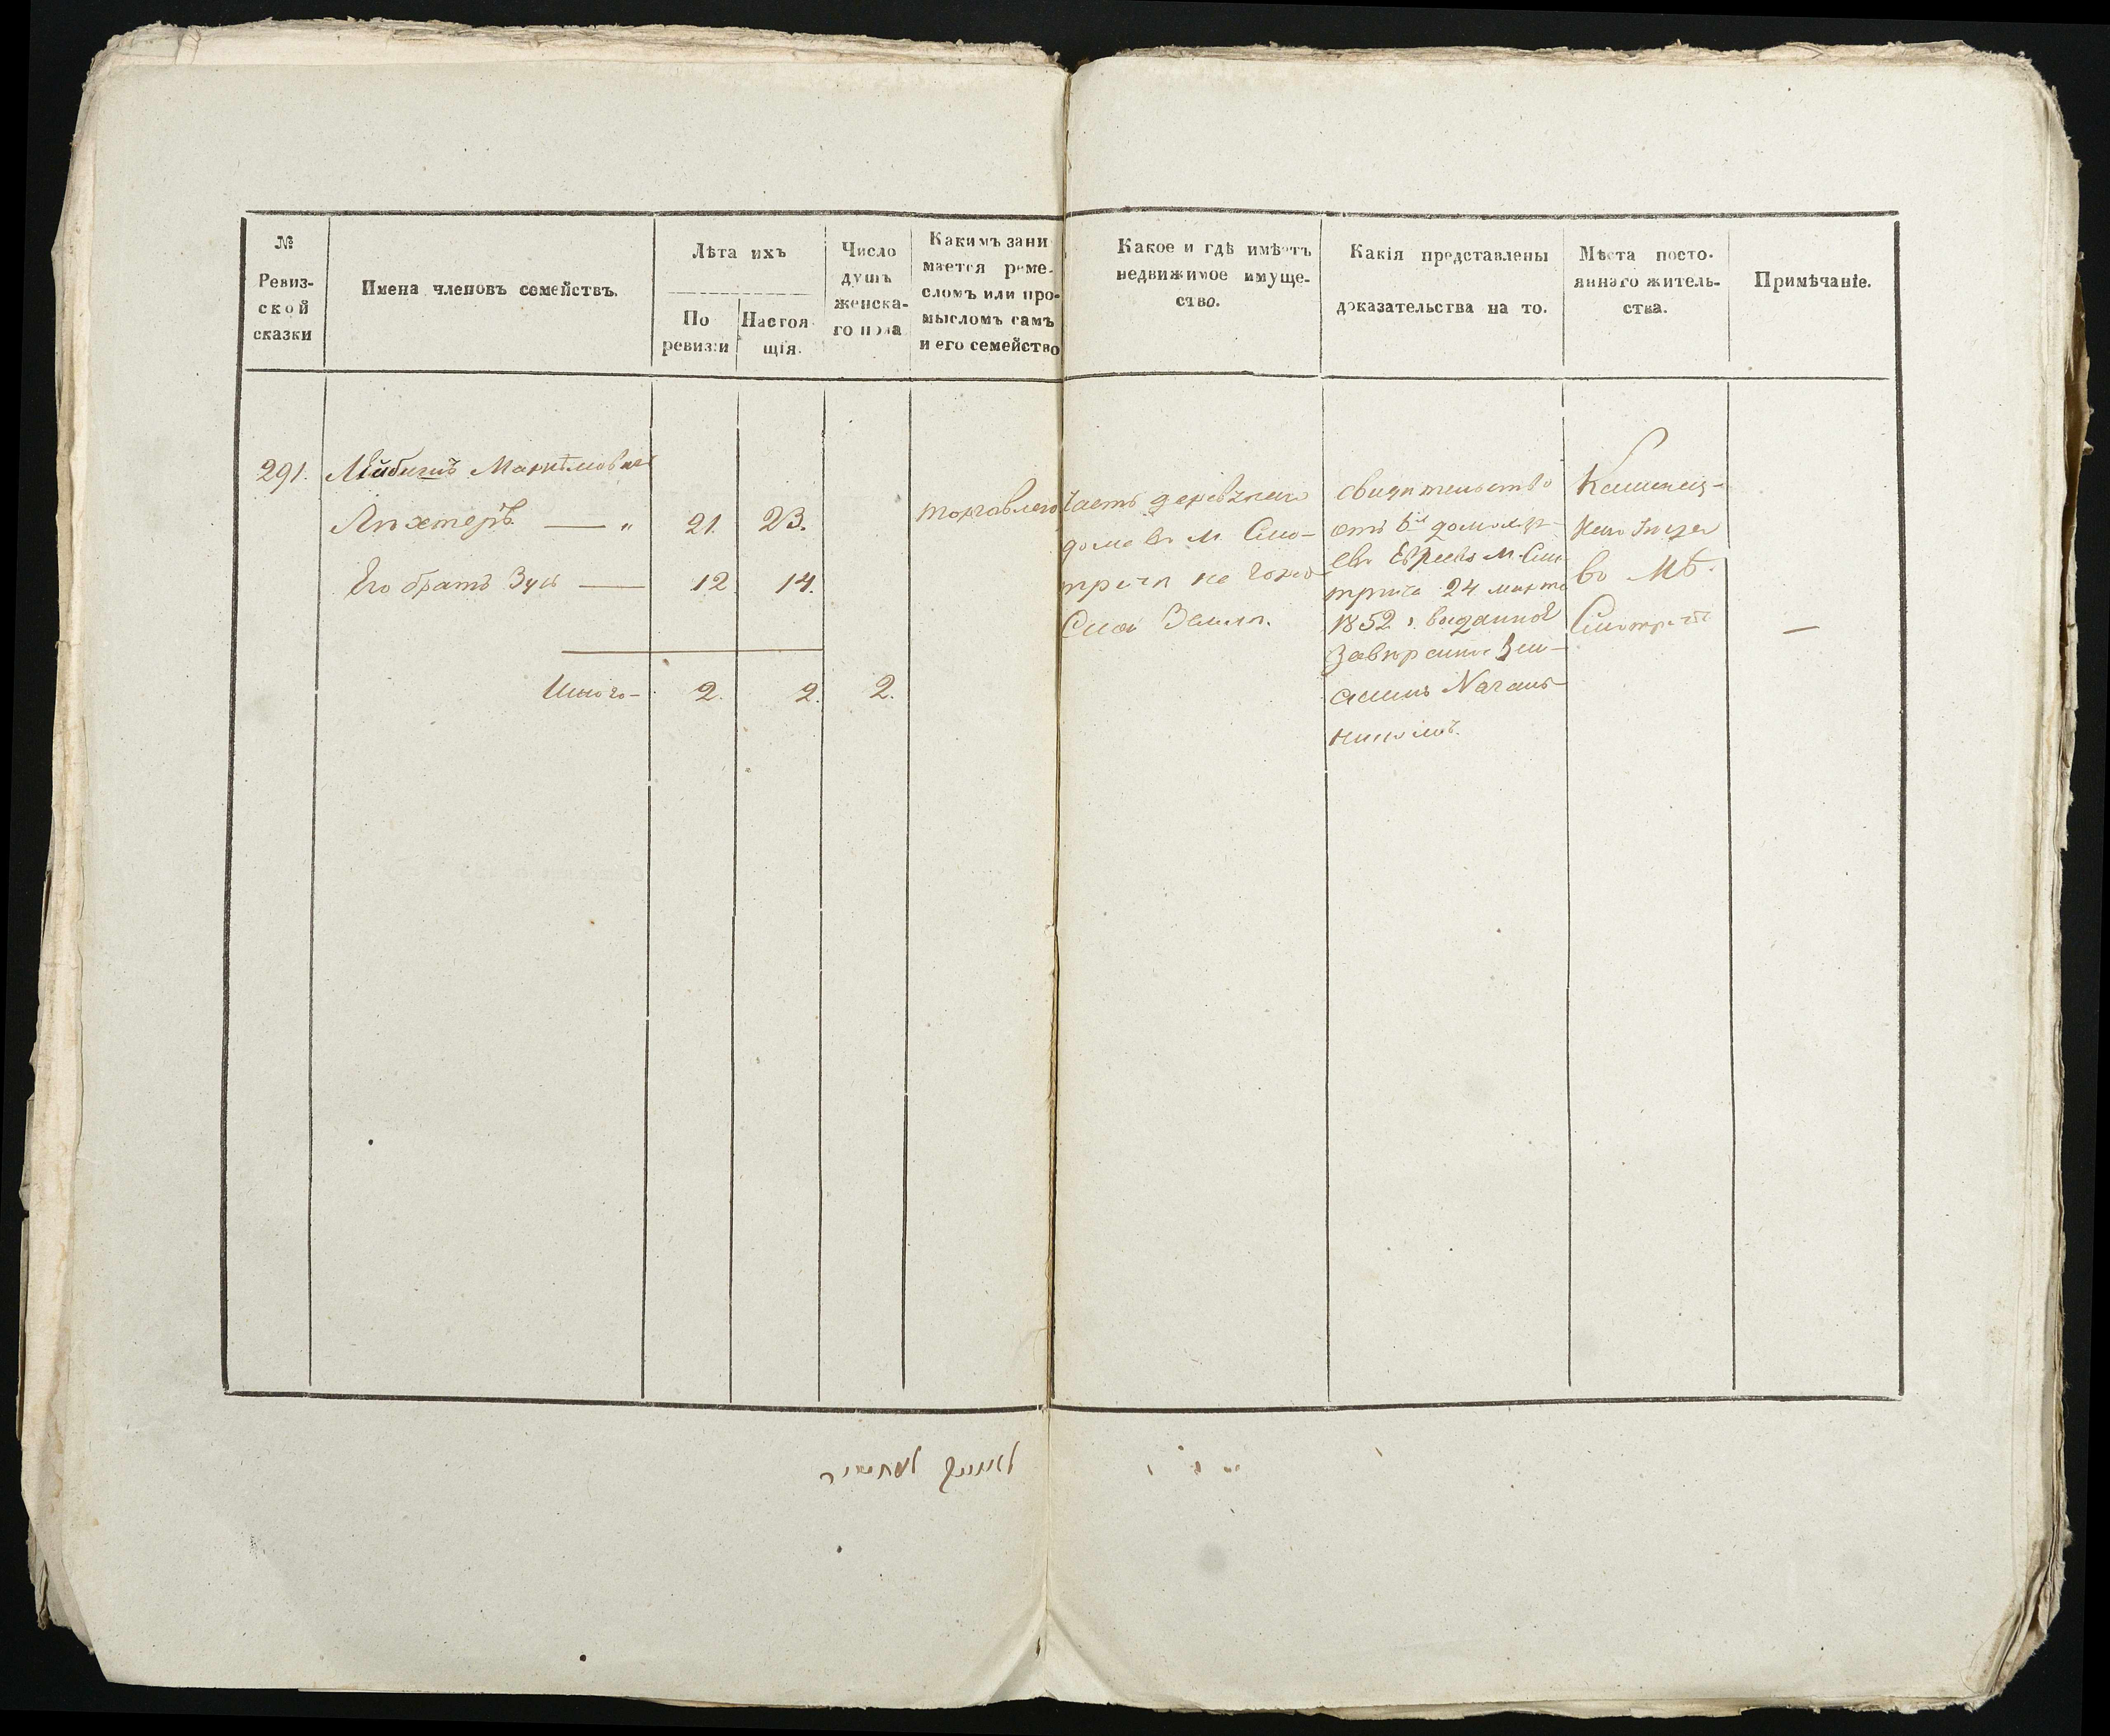 №
Ревиз-
ской
сказки
Имена членовъ семействъ.
Лѣта ихъ
По
ревизіи
Настоя-
щія.
Число
душъ
женска-
го пола
Какимъ зани
мается реме-
сломъ или про-
мысломъ самъ
и его семейство
Какое и гдѣ имѣетъ
недвижимое имуще-
ство.
Какія представлены
доказательства на то.
Мѣста посто-
яннаго житель-
ства.
Примѣчаніе.
291.
Лихтеръ — "
21. 23.
Его братъ Зусь —
12. 14.
Итого — 2. 2. 2.
торговлею
Часть деревянаго
дома въ м. Смо-
тричѣ на
Землѣ.
свидѣтельство
отъ 6ти домохозя-
евъ Евреевъ М. Смо-
трича 24 марта
1852 г. выданное
Завѣренное
Началь-
никомъ.
Каменец-
каго уѣзда
въ Мѣ.
Смотричѣ
—